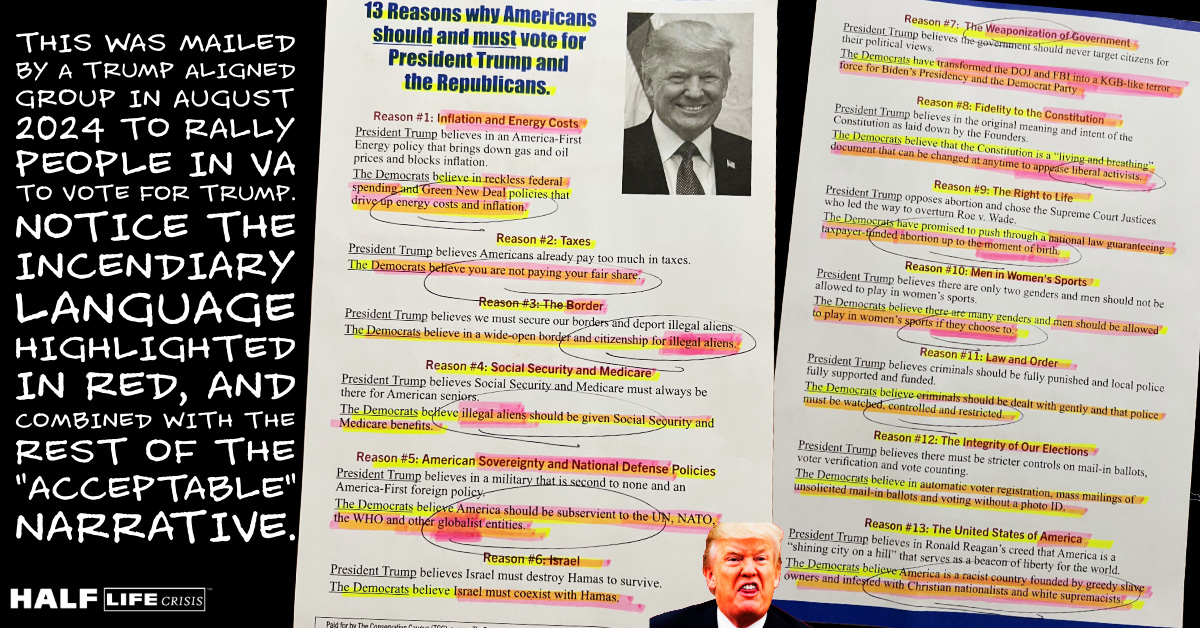 THIS WAS MAILED
BY A TRUMP ALIGNED
GROUP IN AUGUST
2024 TO RALLY
PEOPLE IN VA
TO VOTE FOR TRUMP.
NOTICE THE
INCENDIARY
LANGUAGE
HIGHLIGHTED
IN RED, AND
COMBINED WITH THE
REST OF THE
"ACCEPTABLE"
NARRATIVE.
HALF LIFE CRISIS
13 Reasons why Americans
should and must vote for
President Trump and
the Republicans.
Reason #1: Inflation and Energy Costs
President Trump believes in an America-First
Energy policy that brings down gas and oil
prices and blocks inflation.
The Democrats believe in reckless federal
spending and Green New Deal policies that
drive up energy costs and inflation.
Reason #2: Taxes
President Trump believes Americans already pay too much in taxes.
The Democrats believe you are not paying your fair share.
Reason #3: The Border
President Trump believes we must secure our borders and deport illegal aliens.
The Democrats believe in a wide-open border and citizenship for illegal aliens.
Reason #4: Social Security and Medicare
President Trump believes Social Security and Medicare must always be
there for American seniors.
The Democrats believe illegal aliens should be given Social Security and
Medicare benefits.
Reason #5: American Sovereignty and National Defense Policies
President Trump believes in a military that is second to none and an
America-First foreign policy.
The Democrats believe America should be subservient to the UN, NATO,
the WHO and other globalist entities.
Reason #6: Israel
President Trump believes Israel must destroy Hamas to survive.
The Democrats believe Israel must coexist with Hamas.
Paid for by The Conservative Caucus
Reason #7: The Weaponization of Government
President Trump believes the government should never target citizens for
their political views.
The Democrats have transformed the DOJ and FBI into a KGB-like terror
force for Biden's Presidency and the Democrat Party
Reason #8: Fidelity to the Constitution
President Trump believes in the original meaning and intent of the
Constitution as laid down by the Founders.
The Democrats believe that the Constitution is a "living and breathing"
document that can be changed at anytime to appease liberal activists.
Reason #9: The Right to Life
President Trump opposes abortion and chose the Supreme Court Justices
who led the way to overturn Roe v. Wade.
The Democrats have promised to push through a national law guaranteeing
taxpayer-funded abortion up to the moment of birth.
Reason #10: Men in Women's Sports
President Trump believes there are only two genders and men should not be
allowed to play in women's sports.
The Democrats believe there are many genders and men should be allowed
to play in women's sports if they choose to.
Reason #11: Law and Order
President Trump believes criminals should be fully punished and local police
fully supported and funded.
The Democrats believe criminals should be dealt with gently and that police
must be watched, controlled and restricted.
Reason #12: The Integrity of Our Elections
President Trump believes there must be stricter controls on mail-in ballots,
voter verification and vote counting.
The Democrats believe in automatic voter registration, mass mailings of
unsolicited mail-in ballots and voting without a photo ID.
Reason #13: The United States of America
President Trump believes in Ronald Reagan's creed that America is a
"shining city on a hill" that serves as a beacon of liberty for the world.
The Democrats believe America is a racist country founded by greedy slave
owners and infested with Christian nationalists and white supremacists.